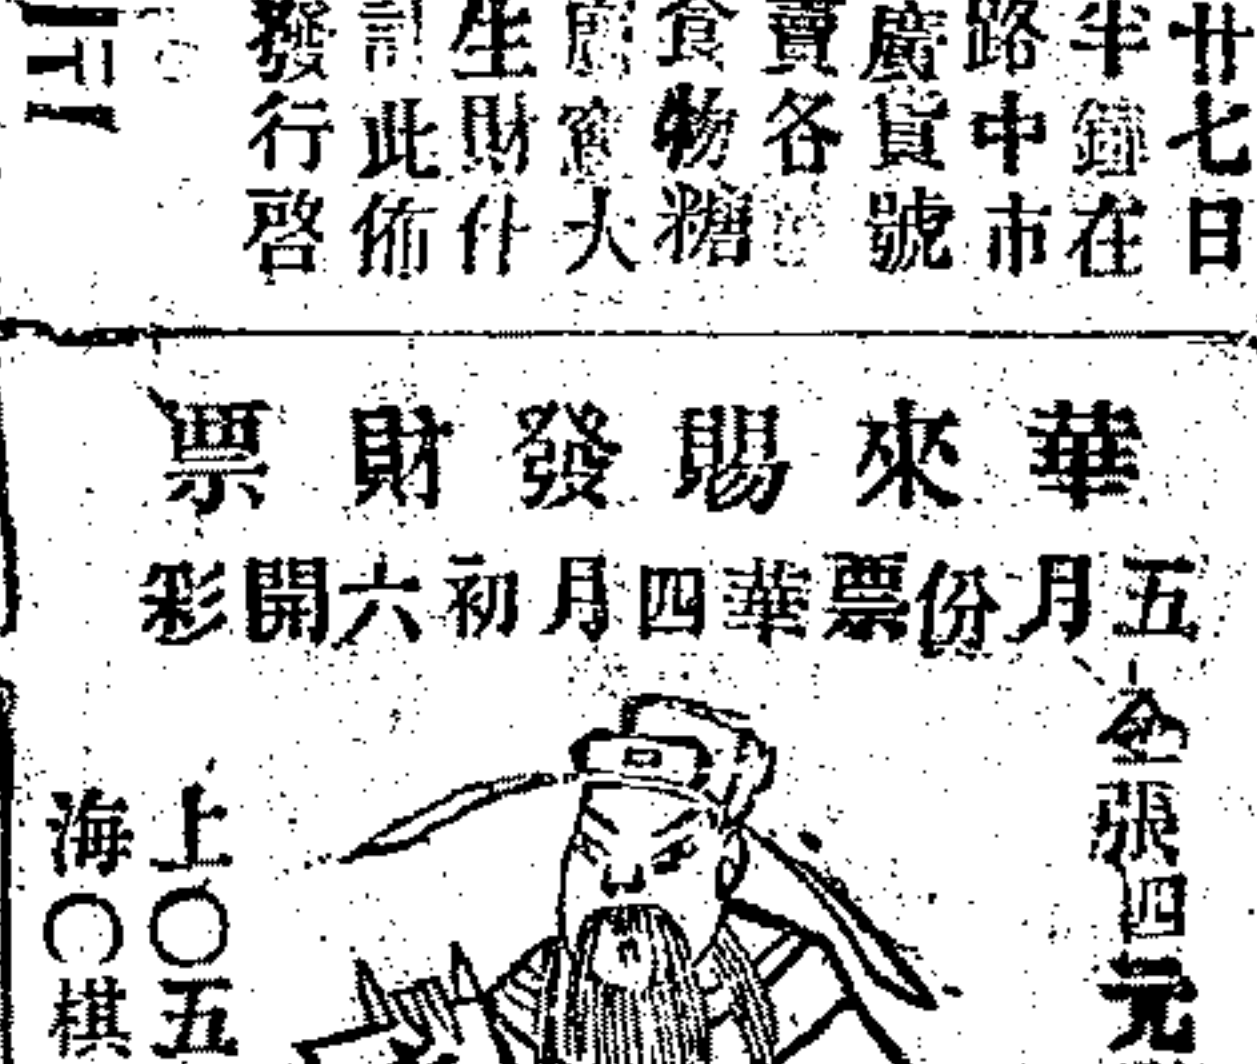 廿七日
半鐘在
路中市
廣貨號
賣各
食物糖
大
生財什
計此佈
發行啓
華來賜發財票
五月份票華四月初六開彩
全張四元
上〇五
海〇棋